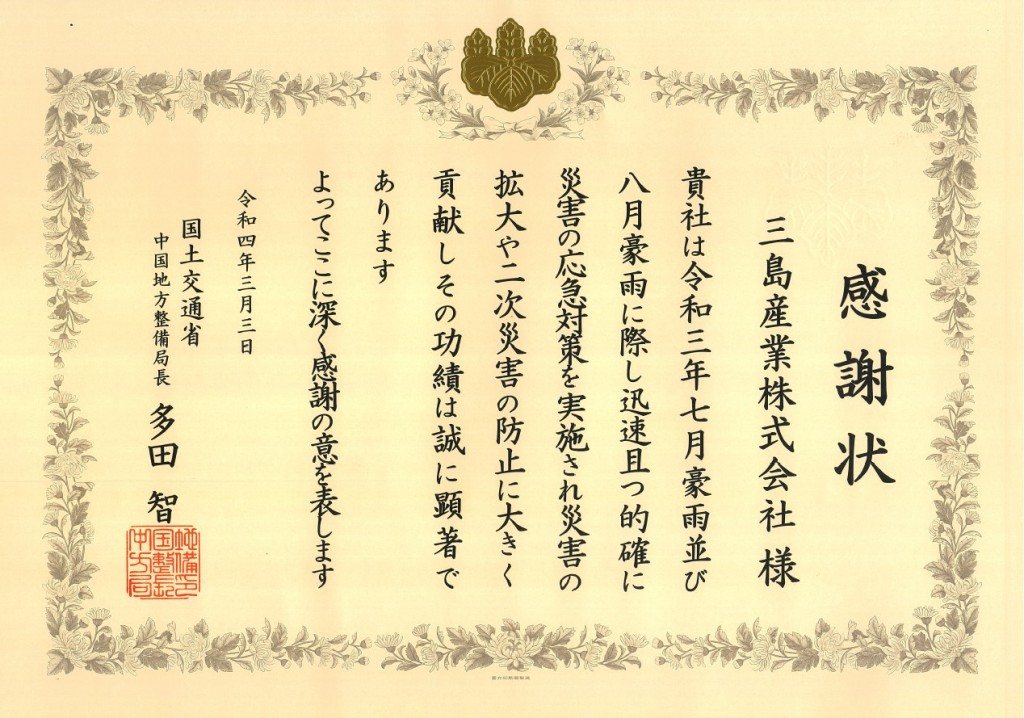 感謝状
三島産業株式会社 様
貴社は令和三年七月豪雨並び
八月豪雨に際し迅速且つ的確に
災害の応急対策を実施され災害の
拡大や二次災害の防止に大きく
貢献しその功績は誠に顕著で
あります
よってここに深く感謝の意を表します
令和四年三月三日
国土交通省
中国地方整備局長 多田 智